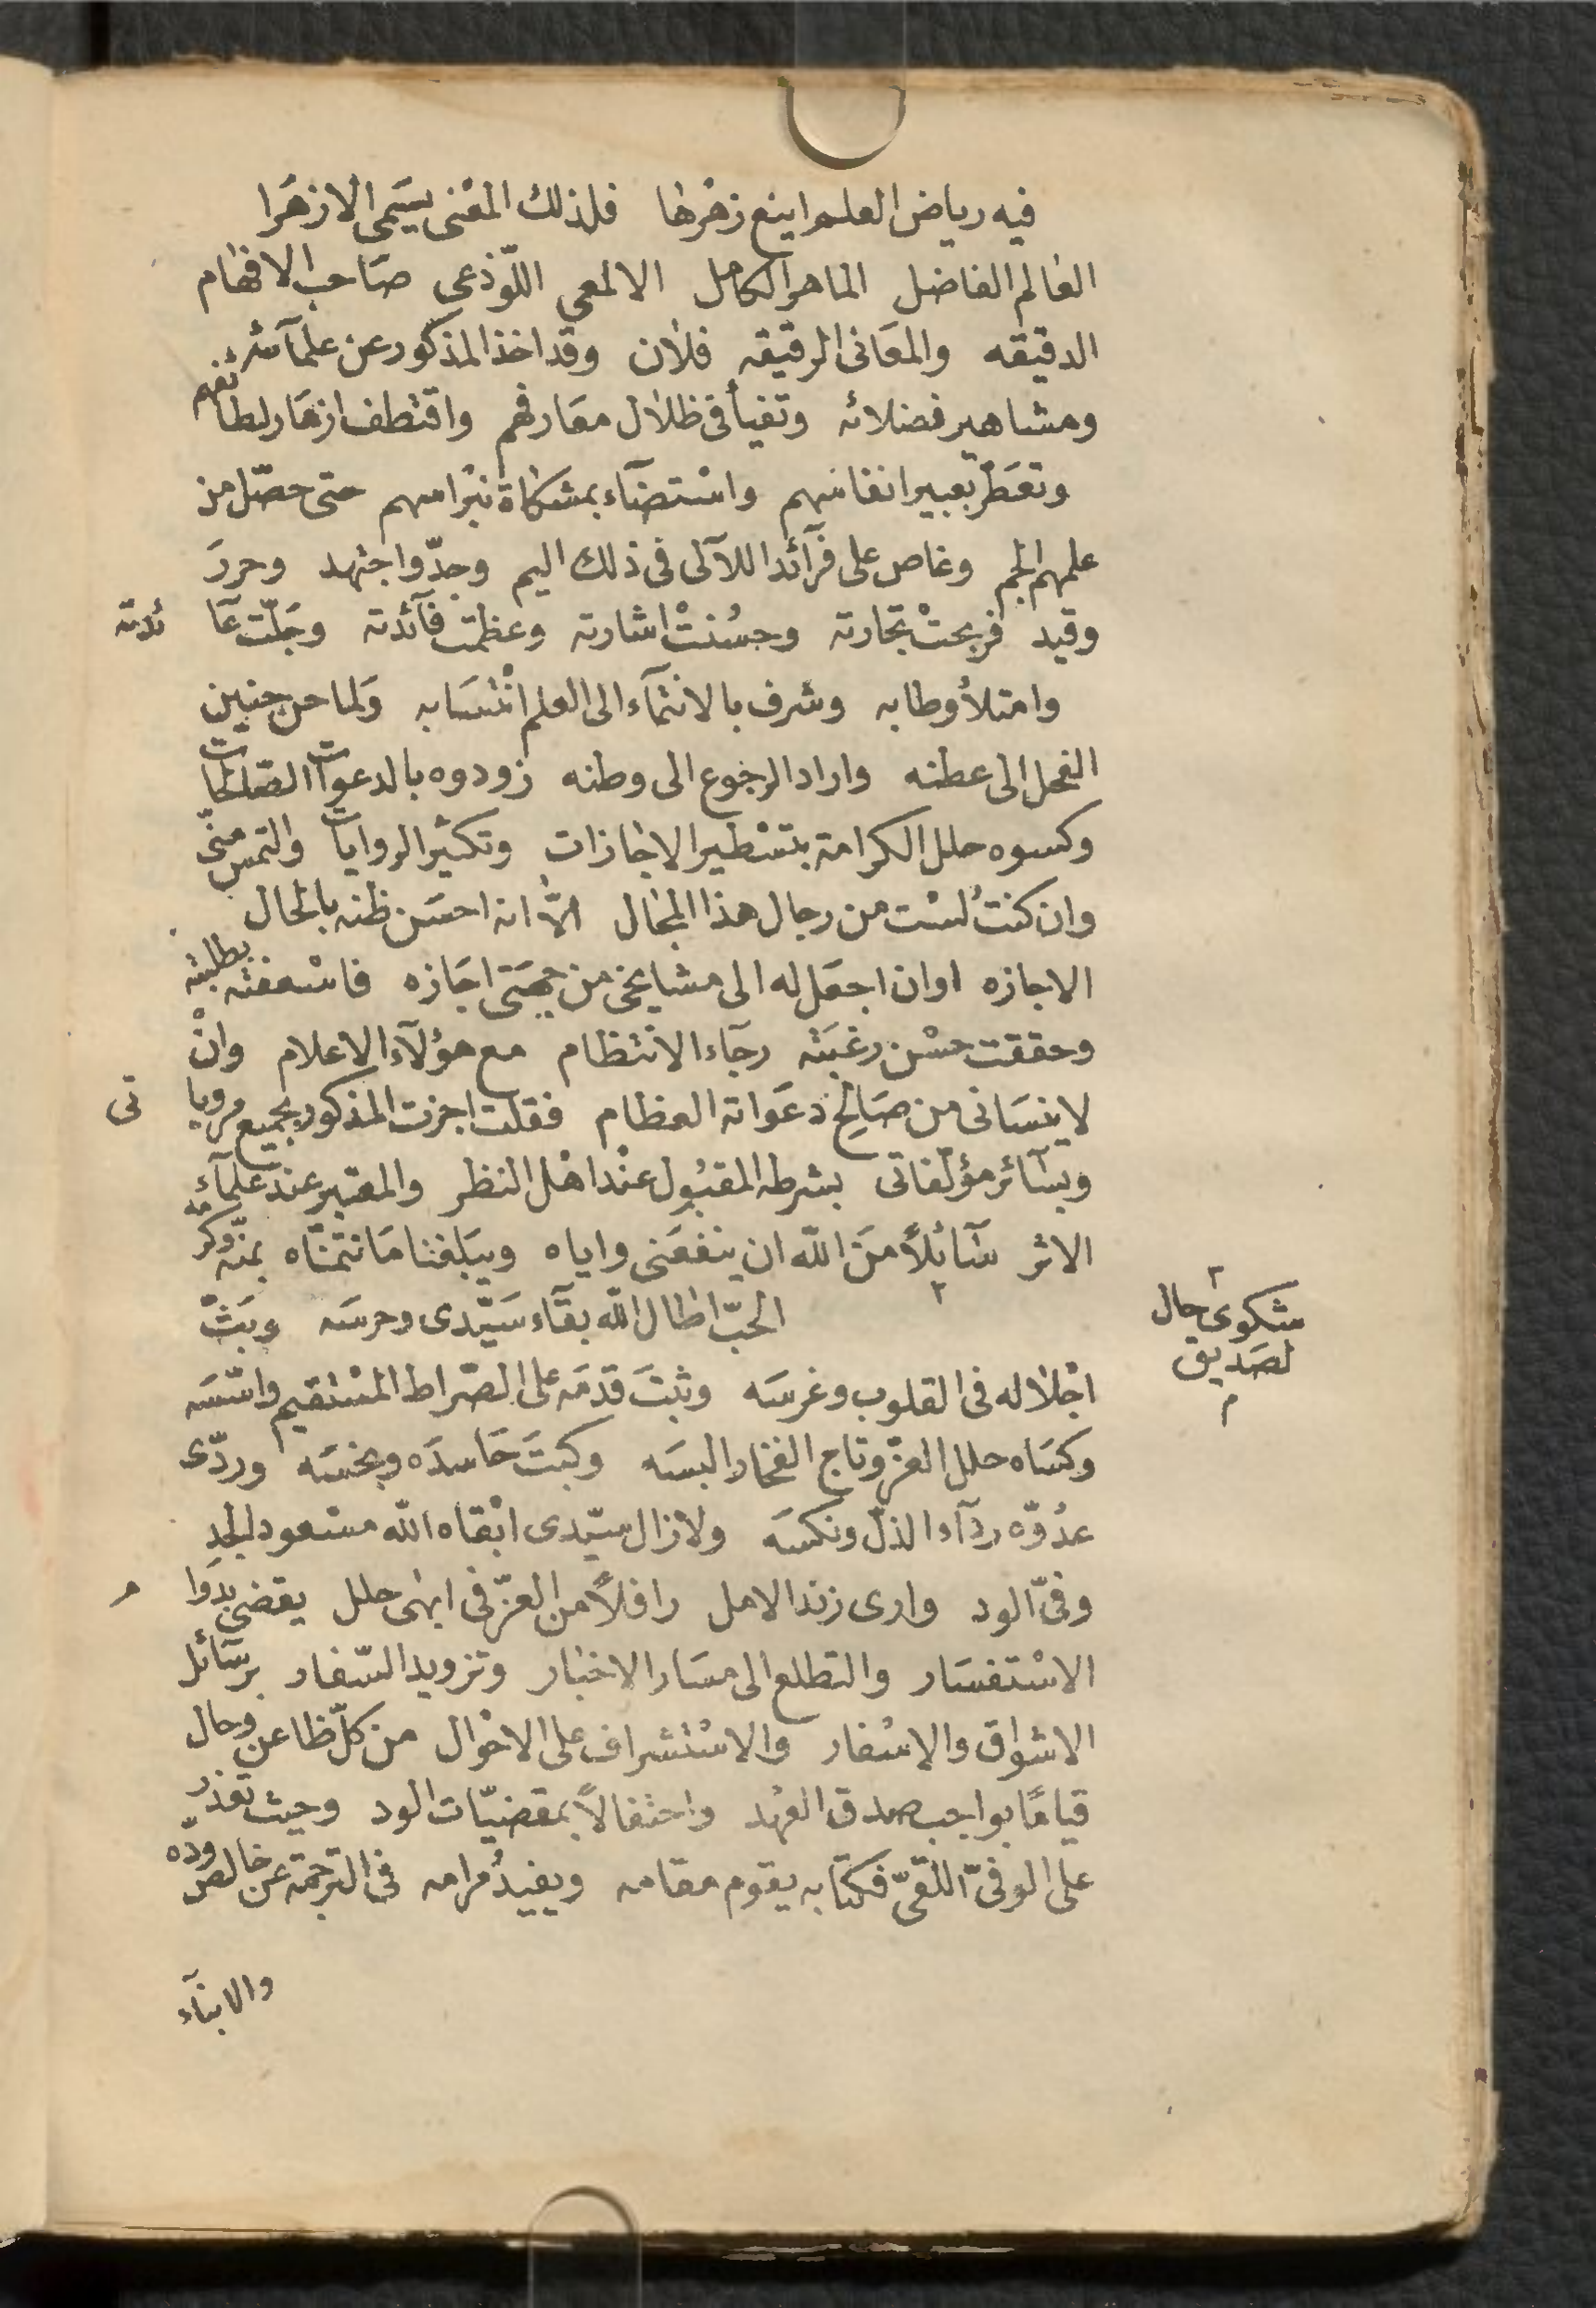 فيه رياض العلم اينع زهرها فلذلك المعنى يسمى الازهرا
العالم الفاضل الماهر الكامل الالمعي اللّوذعي صاحب الافهام
الدقيقه والمعانى الرقيقه فلان وقد اخذ المذكور عن علمآئه
ومشاهير فضلائه وتفيأ فى ظلال معارفهم واقتطف ازهار لطائفهم
وتعطر بعبير انفاسهم واستضآء بمشكاة نبراسهم حتى حصّل من
علمهم الجم وغاص على فرآئد اللآلى فى ذلك اليم وجدّ واجتهد وحرر
وقيد فربحت تجارته وحسنت اشارته وعظمت فآئدته وجلّت عآئدته
وامتلأ وطابه وشرف بالانتمآء الى العلم انتسابه ولما حن حنين
الفحل الى عطنه واراد الرجوع الى وطنه زودوه بالدعوات الصّالحات
وكسوه حلل الكرامة بتسطير الاجازات وتكثير الروايات والتمس منّى
وان كنت لست من رجال هذا المجال الّا انه احسن ظنه بالحال
الاجازه اوان اجعل له الى مشايخى من جهتى اجازه فاسعفته بطلبته
وحققت حسن رغبته رجآء الانتظام مع هؤلآء الاعلام وان
لا ينسانى من صالح دعواته العظام فقلت اجزت المذكور بجميع مروياتى
وبسآئر مؤلفاتى بشرطه المقبول عند اهل النظر والمعتبر عند علمآء
الاثر سآئلاً من الله ان ينفعنى واياه ويبلغنا ما نتمنّاه بمنّه وكرمه
شكوى حال
لصديق
م
المحبّ اطال الله بقآء سيّدى وحرسه وبثّ
اجلاله فى القلوب وغرسه وثبت قدمه على الصّراط المستقيم واسّسه
وكساه حلل العزّ وتاج الفخار البسه وكبت حاسده وبخسه وردّى
عدوّه ردآء الذلّ ونكسه ولا زال سيّدى ابقاه الله مسعود الجد
وفىّ الود وارى زند الامل رافلاً من العزّ فى ابهى حلل يقضى بدوام
الاستفسار والتطلع الى مسار الاخبار وتزويد السّفار برسآئل
الاشواق والاسفار والاستشراف على الاحوال من كلّ ظاعن وحال
قيامًا بواجب صدق العهد واحتفالاً بمقضيّات الود وحيث تعذر
على الوفىّ اللّقىّ فكتابه يقوم مقامه ويفيد مرامه فى الترجمة عن خالص ودّه
والابنآء